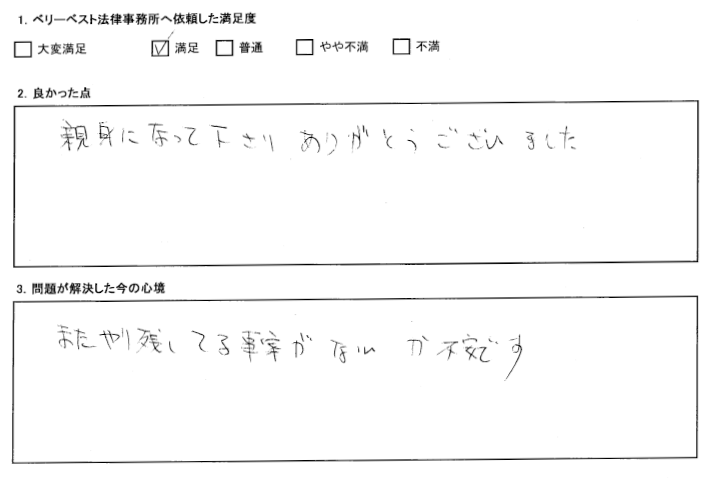 1. ベリーベスト法律事務所へ依頼した満足度
大変満足 満足 普通 やや不満 不満
2. 良かった点
親身になって下さり ありがとうございました
3. 問題が解決した今の心境
またやり残してる事案が ないか不安です